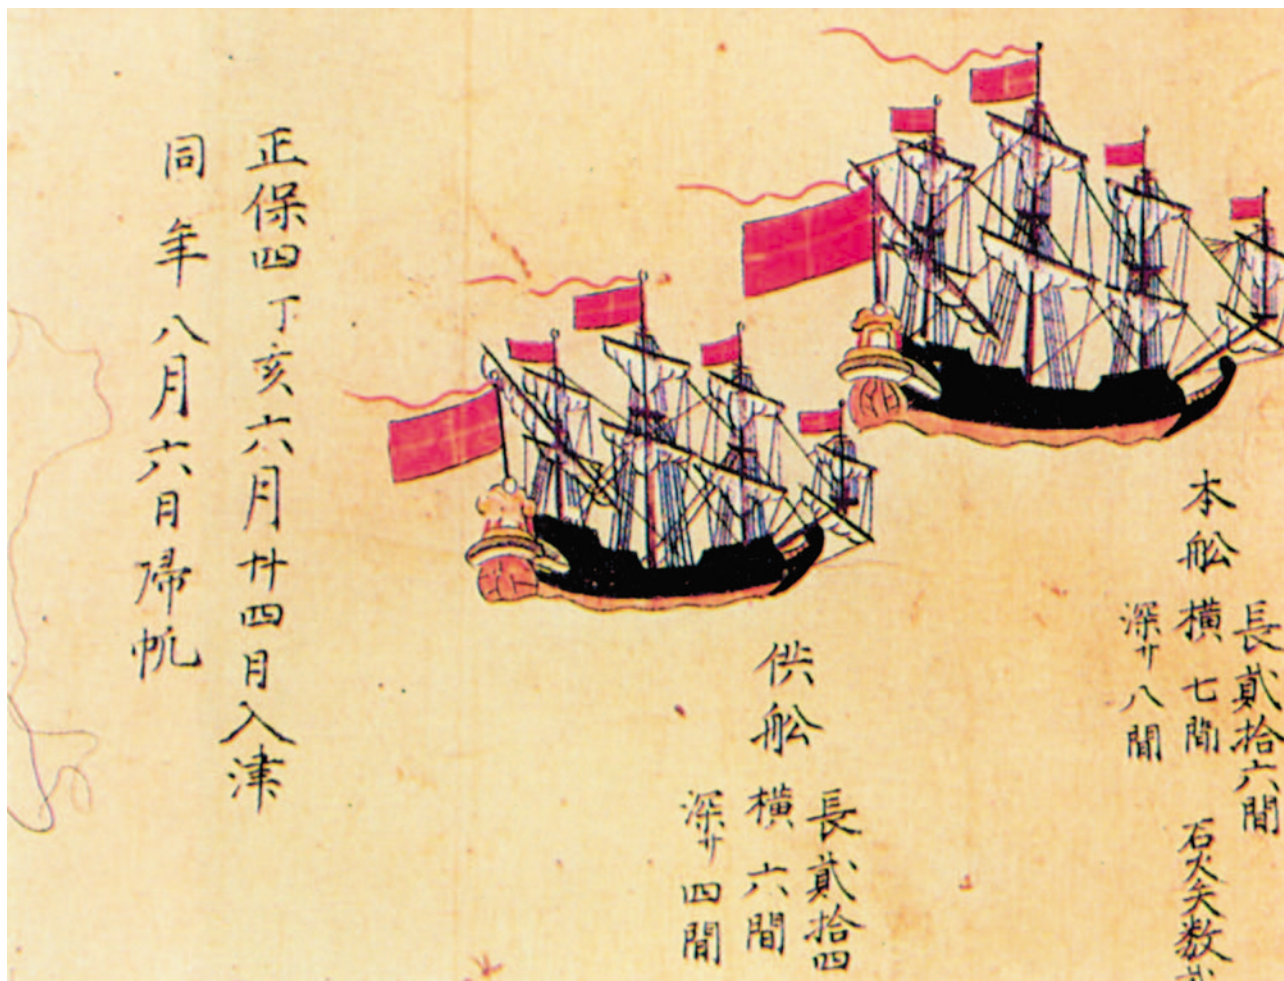 本舩
長貳拾六間
横七間
深サ八間
石火矢数貳
供舩
長貳拾四
横六間
深サ四間
正保四丁亥六月廿四日入津
同年八月六日帰帆